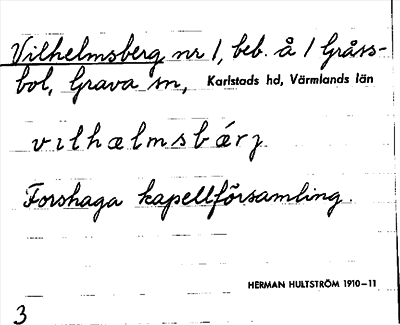 Vilhelmsberg nr 1, beb. å 1 Gråss-
bol, Grava sn, Karlstads hd, Värmlands län
vılhælmsbærj.
Forshaga kapellförsamling.
HERMAN HULTSTRÖM 1910–11
3